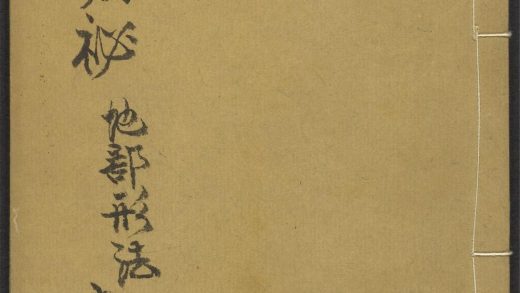 祕
地部形法